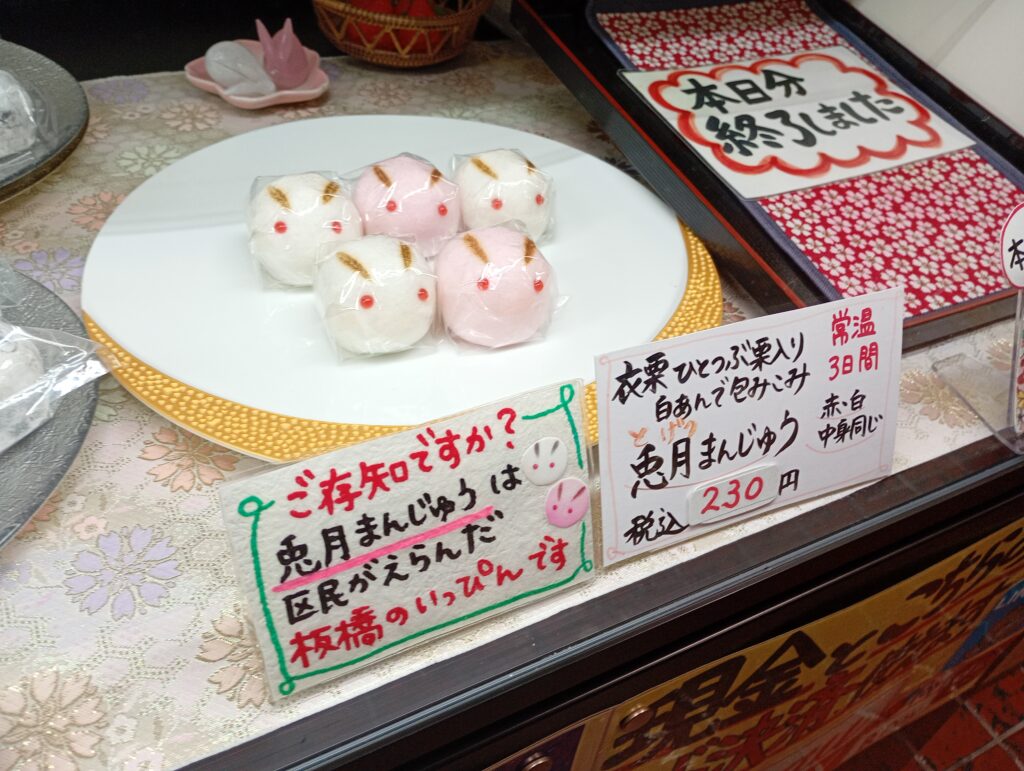 本日分
終了しました
衣栗 ひとつぶ栗入り
白あんで包みこみ
とげつ
兎月まんじゅう
税込 230円
常温
3日間
赤・白
中身同じ
ご存知ですか?
兎月まんじゅうは
区民がえらんだ
板橋のいっぴんです
本